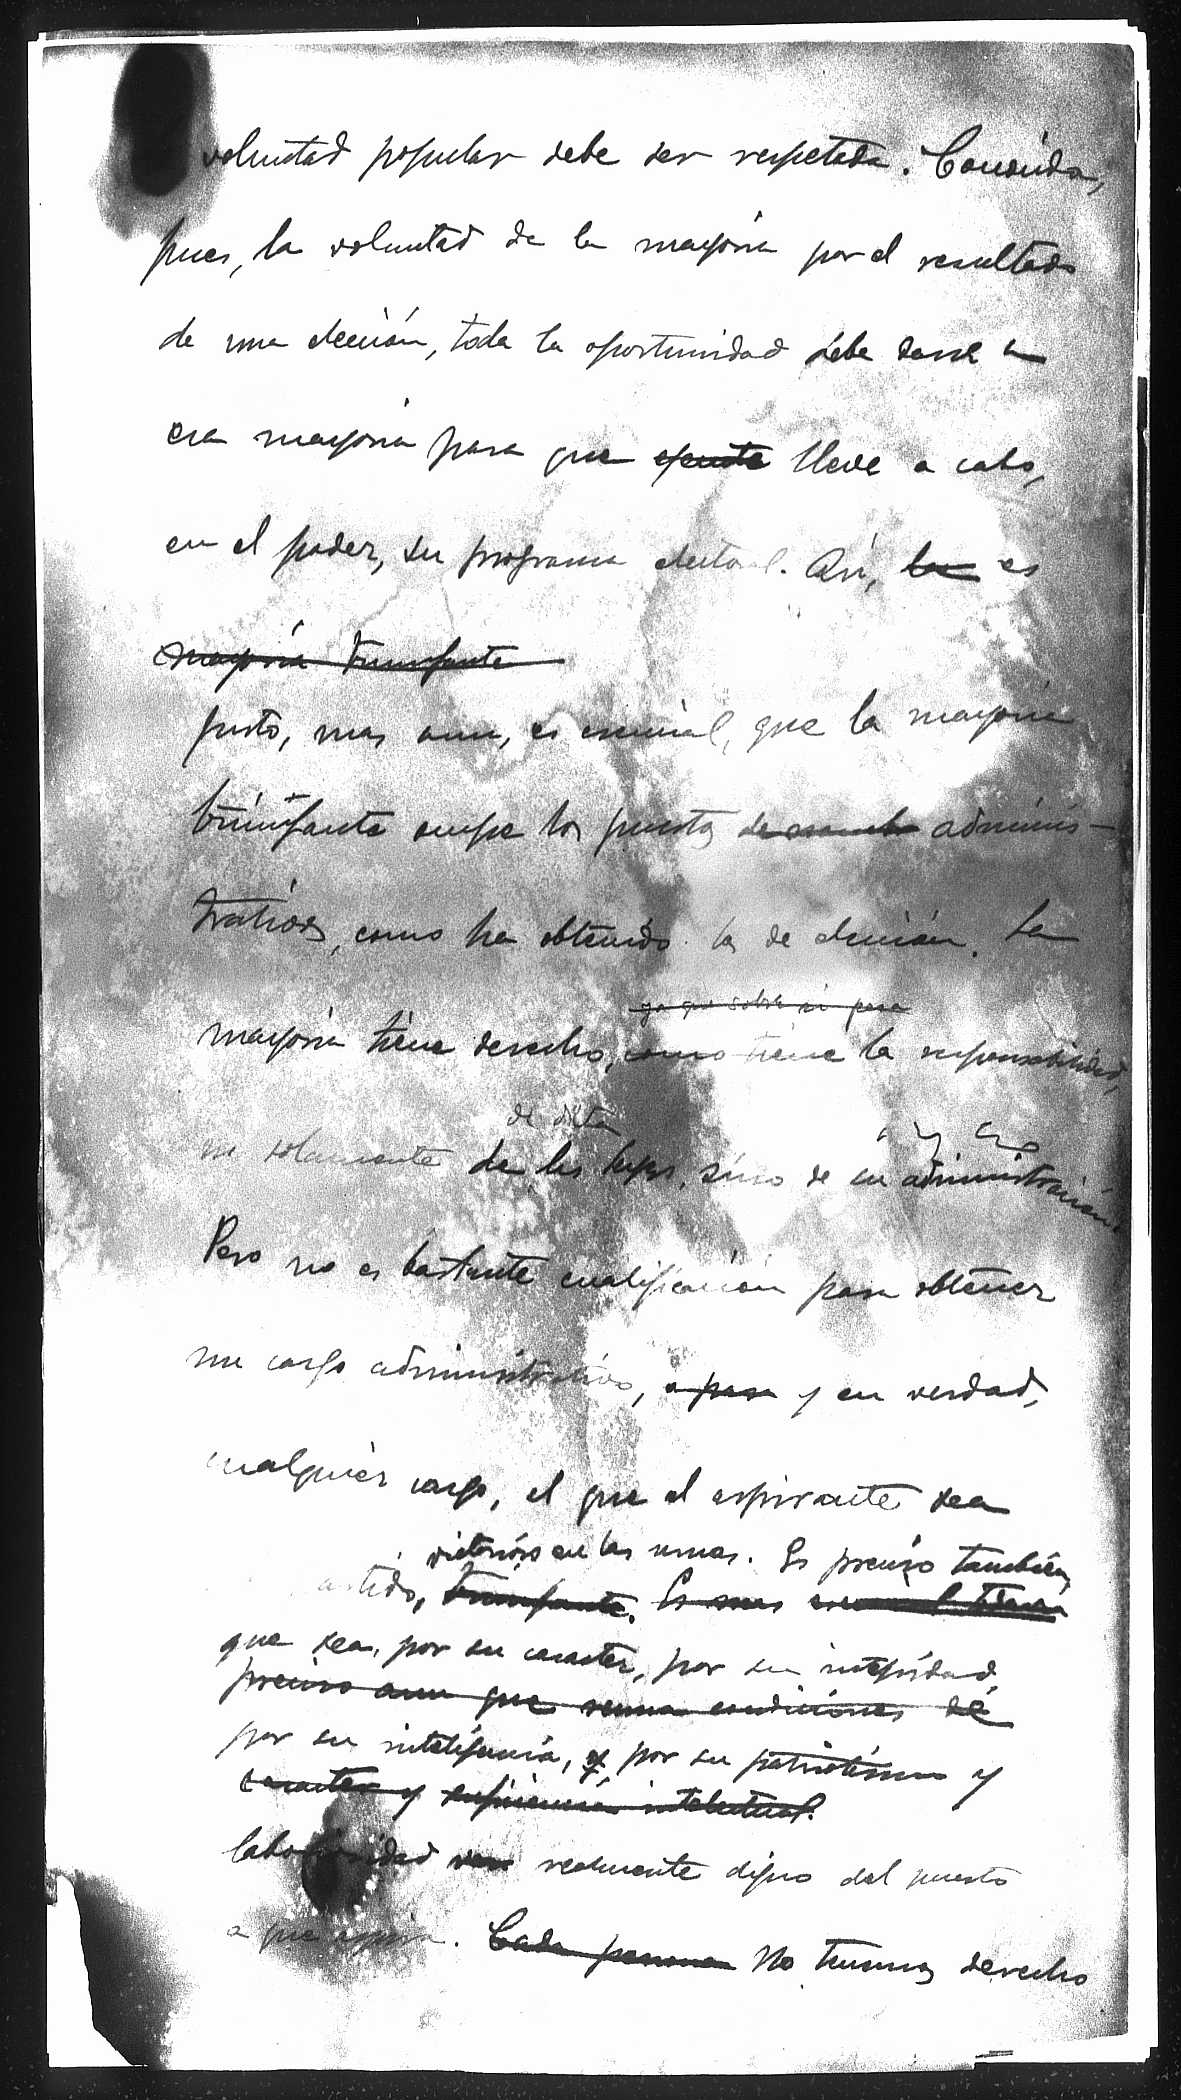 voluntad popular debe ser respetada. Conocida,
pues, la voluntad de la mayoría por el resultado
de una elección, toda la oportunidad debe darse a
esa mayoría para que ejecute lleve a cabo,
en el poder, su programa electoral. Así, la es
mayoría triunfante
justo, mas aun, es esencial, que la mayoría
triunfante ocupe los puestos adminis-
trativos, como ha obtenido los de elección. La
ya que sobre si pesa
mayoría tiene derecho, como tiene la responsabilidad,
no solamente de dictar las leyes, sino de su administración.
Pero no es bastante cualificación para obtener
un cargo administrativo, y en verdad,
cualquier cargo, el que el aspirante sea
victorioso en las urnas. Es preciso también,
partido, triunfante. Es mas esencial
que sea, por su caracter, por su integridad,
preciso aun que reuna condiciones de
por su inteligencia, y, por su patriotismo y
caracter y suficiencia intelectual.
laboriosidad realmente digno del puesto
a que aspira. Cada persona No tenemos derecho